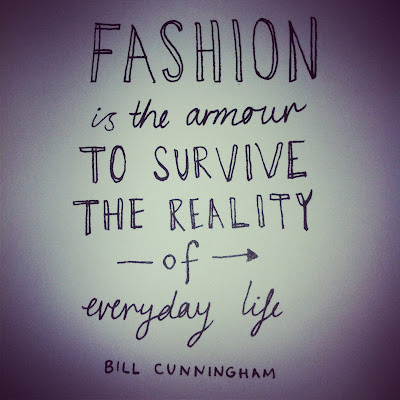 FASHION
is the armour
TO SURVIVE
THE REALITY
of
everyday life
BILL CUNNINGHAM